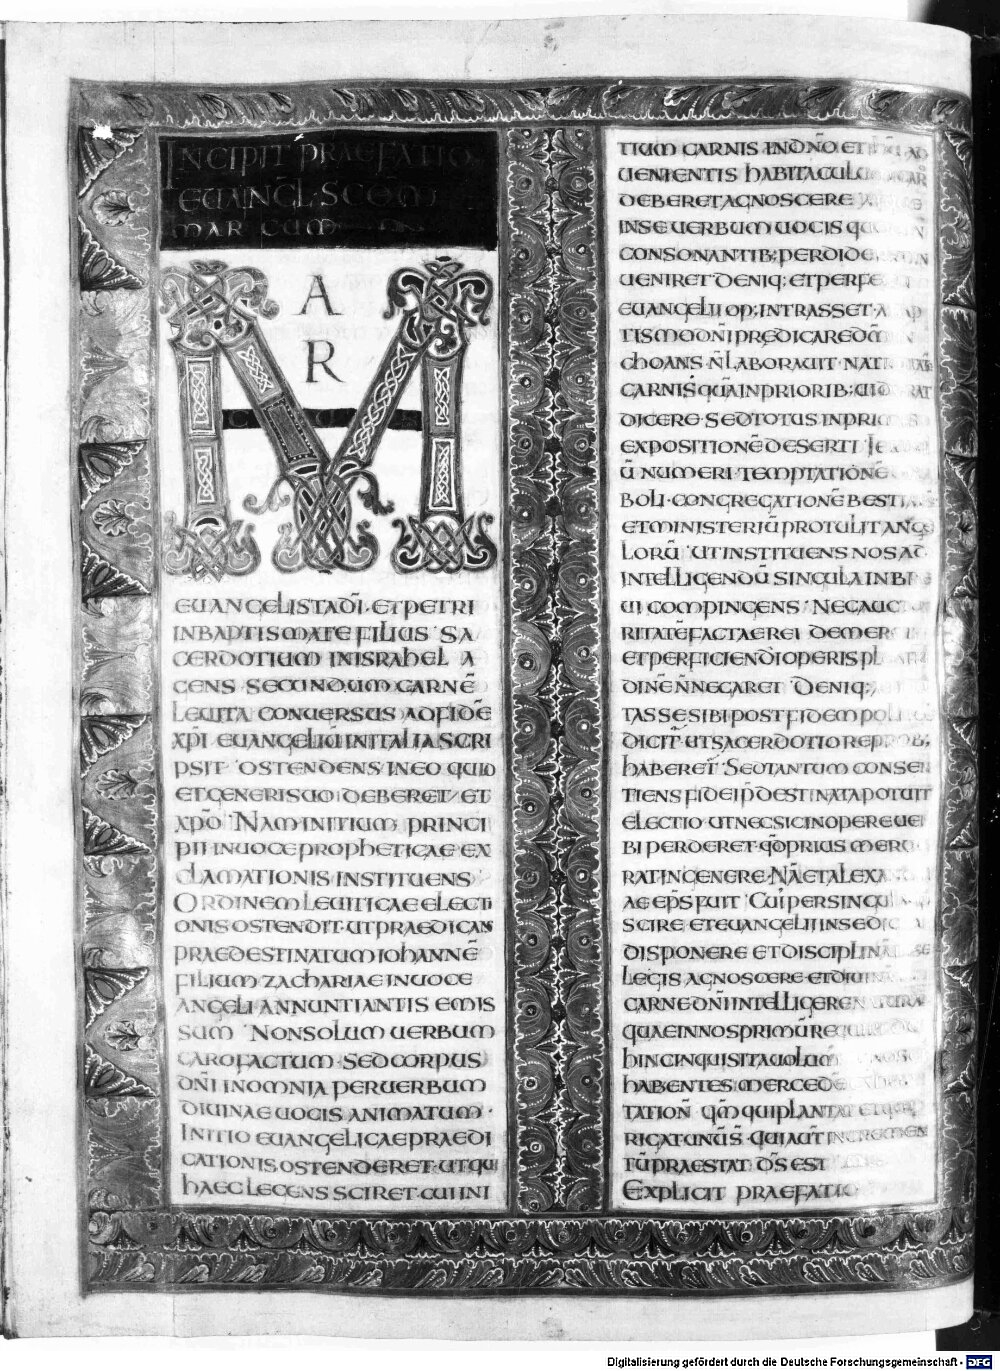 INCIPIT PRAEFATIO
EUANGEL· SCDM
MARCUM
MAR
CUS
EUANGELISTA DĪ· ET PETRI
IN BAPTISMATE FILIUS· SA
CERDOTIUM IN ISRAHEL A
GENS· SECUNDUM CARNĒ
LEUITA CONUERSUS AD FIDĒ
XPĪ EUANGELIŪ IN ITALIA SCRI
PSIT· OSTENDENS IN EO QUID
ET GENERI SUO DEBERET ET
XPŌ· NAM INITIUM PRINCI
PII IN UOCE PROPHETICAE EX
CLAMATIONIS INSTITUENS
ORDINEM LEUITICAE ELECTI
ONIS OSTENDIT· UT PRAEDICANS
PRAEDESTINATUM IOHANNĒ
FILIUM ZACHARIAE IN UOCE
ANGELI ANNUNTIANTIS EMIS
SUM· NON SOLUM UERBUM
CARO FACTUM· SED CORPUS
DN̄I IN OMNIA PER UERBUM
DIUINAE UOCIS ANIMATUM·
INITIO EUANGELICAE PRAEDI
CATIONIS OSTENDERET· UT QUI
HAEC LEGENS SCIRET· CUI INI
TIUM CARNIS· IN DN̄O· ET
UENIENTIS HABITACULU
DEBERET AGNOSCERE
IN SE UERBUM UOCIS
CONSONANTIB; PERDIDE
UENIRET· DENIQ; ET PERFE
EUANGELII OP; INTRASSET· A
TISMO DN̄I PRĘDICARE DM̄
CHOANS· N̄ LABORAUIT NATI
CARNIS· QUĀ IN PRIORIB;
DICERE· SED TOTUS IN PRI
EXPOSITIONĒ DESERTI· IE
Ū NUMERI· TEMPTATIONĒ
BOLI· CONGREGATIONĒ BESTIA
ET MINISTERIŪ PROTULIT ANGE
LORŪ· UT INSTITUENS NOS AD
INTELLIGENDŪ SINGULA IN BRE
UI COMPINGENS· NEC AUCT
RITATĒ FACTAE REI DEMER
ET PERFICIENDI OPERIS PL
DINĒ N̄ NEGARET· DENIQ;
TASSE SIBI POST FIDEM POLLI
DICIT̄· UT SACERDOTIO REPROB;
HABERET̄· SED TANTUM CONSEN
TIENS FIDEI P̄DESTINATA POTUIT
ELECTIO· UT NEC SIC IN OPERE UER
BI PERDERET· QD̄ PRIUS MERU
RAT IN GENERE· NĀ ET ALEXA
AE EP̄S FUIT· CUI' PER SINGULA
SCIRE ET EUANGELII IN SE DIC
DISPONERE ET DISCIPLINĀ
LEGIS AGNOSCERE· ET DIUINĀ
CARNE DN̄I INTELLIGERE NATURĀ
QUAE IN NOS PRIMŪ REQUIRI
HINC INQUISITA UOLUM̄ AGNOSCI
HABENTES MERCEDĒ
TATION̄· QM̄ QUI PLANTAT ET QUI
RIGAT· UNŪ S̄· QUI AUT̄ INCREMEN
TŪ PRAESTAT· DS̄ EST
EXPLICIT PRAEFATIO
Digitalisierung gefördert durch die Deutsche Forschungsgemeinschaft - DFG